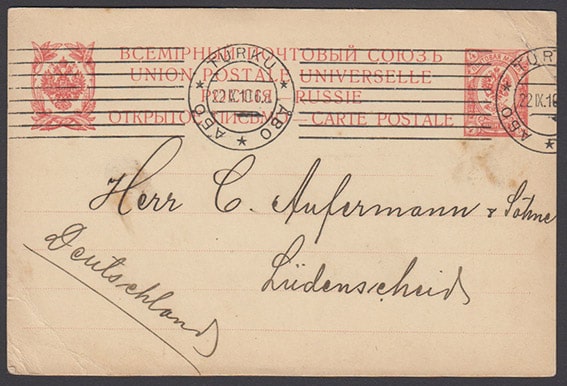 ВСЕМІРНЫЙ ПОЧТОВЫЙ СОЮЗЪ
UNION POSTALE UNIVERSELLE
РОССІЯ RUSSIE
ОТКРЫТОЕ ПИСЬМО CARTE POSTALE
TURKU
22 IX.10
АБО ÅBO
TUR
22 IX.10
АБО
Herr C. Aufermann & Söhne
Lüdenscheid
Deutschland